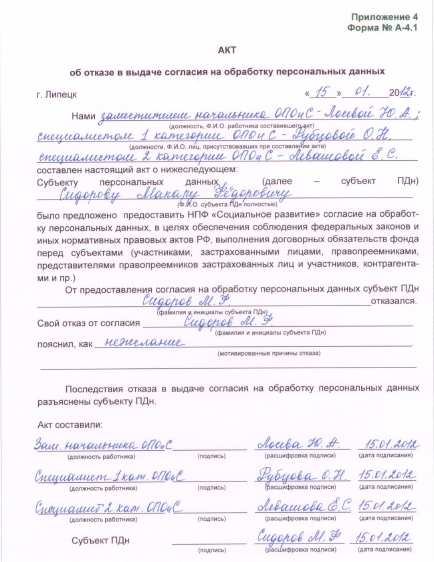 Приложение 4
Форма № А-4.1
АКТ
об отказе в выдаче согласия на обработку персональных данных
г. Липецк « 15 » 01. 2012г.
Нами заместителем начальника ОПОиС - Лосевой Ю. А.;
(должность, Ф.И.О. работника составившего акт)
специалистом 1 категории ОПОиС - Рубцовой О.Н.
(должности, Ф.И.О. лиц, присутствовавших при составлении акта)
специалистом 2 категории ОПОиС - Левашовой Е.С.
составлен настоящий акт о нижеследующем:
Субъекту персональных данных , (далее – субъект ПДн)
Сидорову Макару Фёдоровичу
(Ф.И.О. субъекта ПДн полностью)
было предложено предоставить НПФ «Социальное развитие» согласие на обработ-
ку персональных данных, в целях обеспечения соблюдения федеральных законов и
иных нормативных правовых актов РФ, выполнения договорных обязательств фонда
перед субъектами (участниками, застрахованными лицами, правопреемниками,
представителями правопреемников застрахованных лиц и участников, контрагента-
ми и пр.)
От предоставления согласия на обработку персональных данных субъект ПДн
Сидоров М. Ф. отказался.
(фамилия и инициалы субъекта ПДн)
Свой отказ от согласия Сидоров М. Ф.
(фамилия и инициалы субъекта ПДн)
пояснил, как нежелание
(мотивированные причины отказа)
Последствия отказа в выдаче согласия на обработку персональных данных
разъяснены субъекту ПДн.
Акт составили:
Зам. начальника ОПОиС Лосева Ю. А 15.01.2012
(должность работника) (подпись) (расшифровка подписи) (дата подписания)
Специалист 1 кат. ОПОиС Рубцова О.Н. 15.01.2012
(должность работника) (подпись) (расшифровка подписи) (дата подписания)
Специалист 2 кат. ОПОиС Левашова Е.С. 15.01.2012
(должность работника) (подпись) (расшифровка подписи) (дата подписания)
Субъект ПДн Сидоров М. Ф 15.01.2012
(подпись) (расшифровка подписи) (дата подписания)